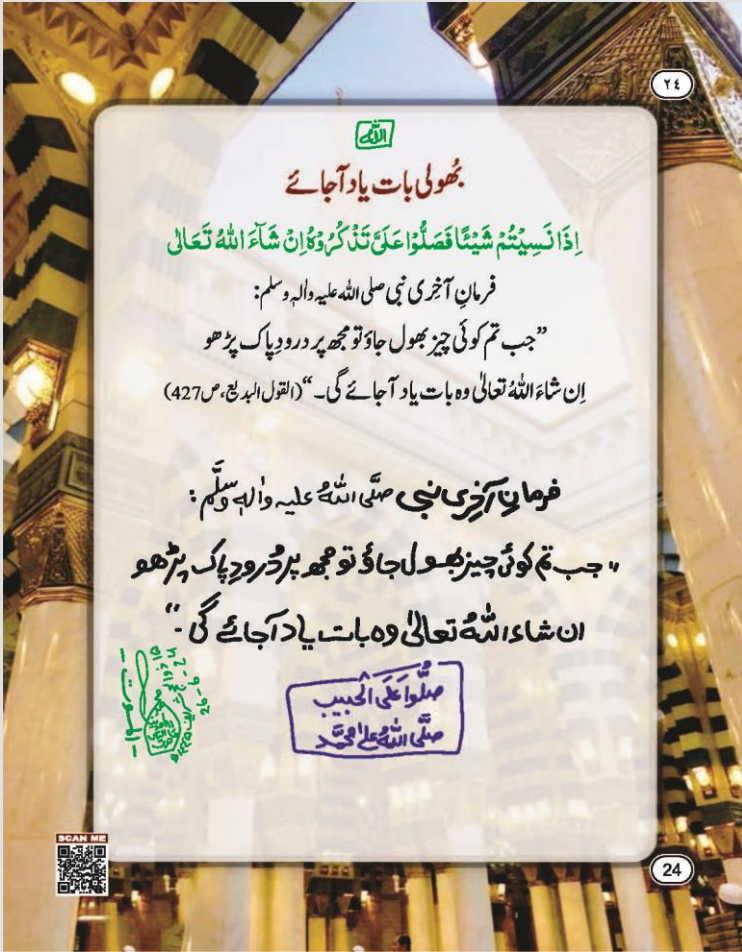 ٢٤
اللّٰه
بُھولی بات یاد آجائے
اِذَا نَسِیْتُمْ شَیْئًا فَصَلُّوْا عَلَیَّ تَذْکُرُوْہُ اِنْ شَآءَ اللّٰہُ تَعَالٰی
فرمانِ آخِری نبی صلی اللہ علیہ واٰلہٖ وسلم:
”جب تم کوئی چیز بھول جاؤ تو مجھ پر درودِ پاک پڑھو
اِن شاءَ اللہُ تعالٰی وہ بات یاد آجائے گی۔“ (القول البدیع، ص427)
فرمانِ آخِری نبی صَلَّی اللہُ علیہ واٰلہٖ وسَلَّم:
”جب تم کوئی چیز بھول جاؤ تو مجھ پر دُرودِ پاک پڑھو
ان شاء اللہُ تعالٰی وہ بات یاد آجائے گی۔“
صلُّوا عَلَی الْحَبِیب
صلَّی اللہُ علٰی محمَّد
26-6-24
SCAN ME
24